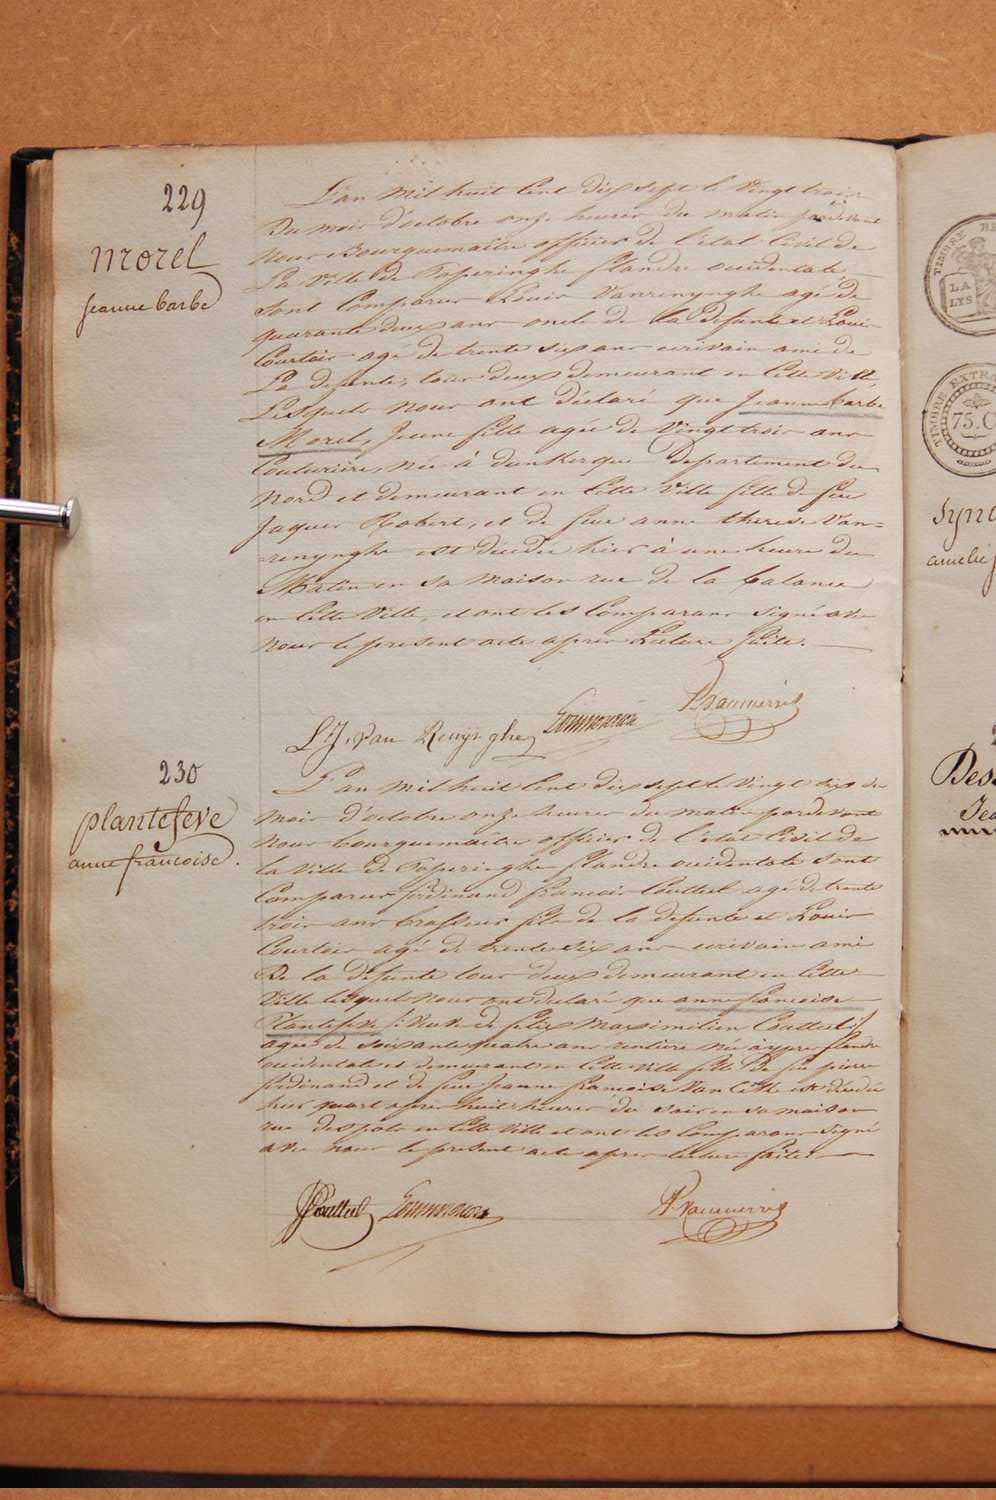 229
morel
jeanne barbe
L'an mil huit cent dix sept le vingt trois
du mois d'octobre onze heures du matin pardevant
nous Bourguemaître officier de l'état civil de
la ville de Poperinghe flandre occidentale
sont comparus Louis Vanrenynghe agé de
quarante deux ans oncle de la defunte et Louis
Courtois agé de trente six ans ecrivain ami de
la defunte, tous deux demeurant en cette ville,
Lesquels nous ont déclaré que Jeanne barbe
Morel, Jeune fille agée de vingt trois ans
Couturière, née à dunkerque Departement du
Nord et demeurant en cette ville fille de feu
Jaques Robert, et de feue anne therese Van=
=renynghe est décédée hier à une heure du
Matin en sa maison rue de la balance
en cette ville, et ont les comparans signé avec
nous le present acte apres Lecture faite.
L J. Van Renynghe
230
plantefeve
anne francoise.
L'an mil huit cent dix sept le vingt trois du
mois d'octobre onze heures du matin pardevant
nous bourguemaître officier de l'état civil de
la ville de Poperinghe flandre occidentale sont
comparus ferdinand francois Coutteel agé de trente
trois ans brasseur fils de la defunte et Louis
Courtois agé de trente six ans ecrivain ami
De la defunte tous deux demeurant en cette
ville lesquels nous ont declaré que anne francoise
Plantefeve veuve de felix Maximilien Coutteel
agée de soixante quatre ans rentiere née à ypres flandre
occidentale et demeurant en cette ville fille de feu pierre
ferdinand et de feue Jeanne françoise est décédée
hier quart apres huit heures du soir en sa maison
rue des pots en cette ville et ont les comparans signé
avec nous le present acte apres lecture faite.
Coutteel
TIMBRE
LA
LYS
TIMBRE EXTRA
75. C
Synd
amelie
Des
Jea